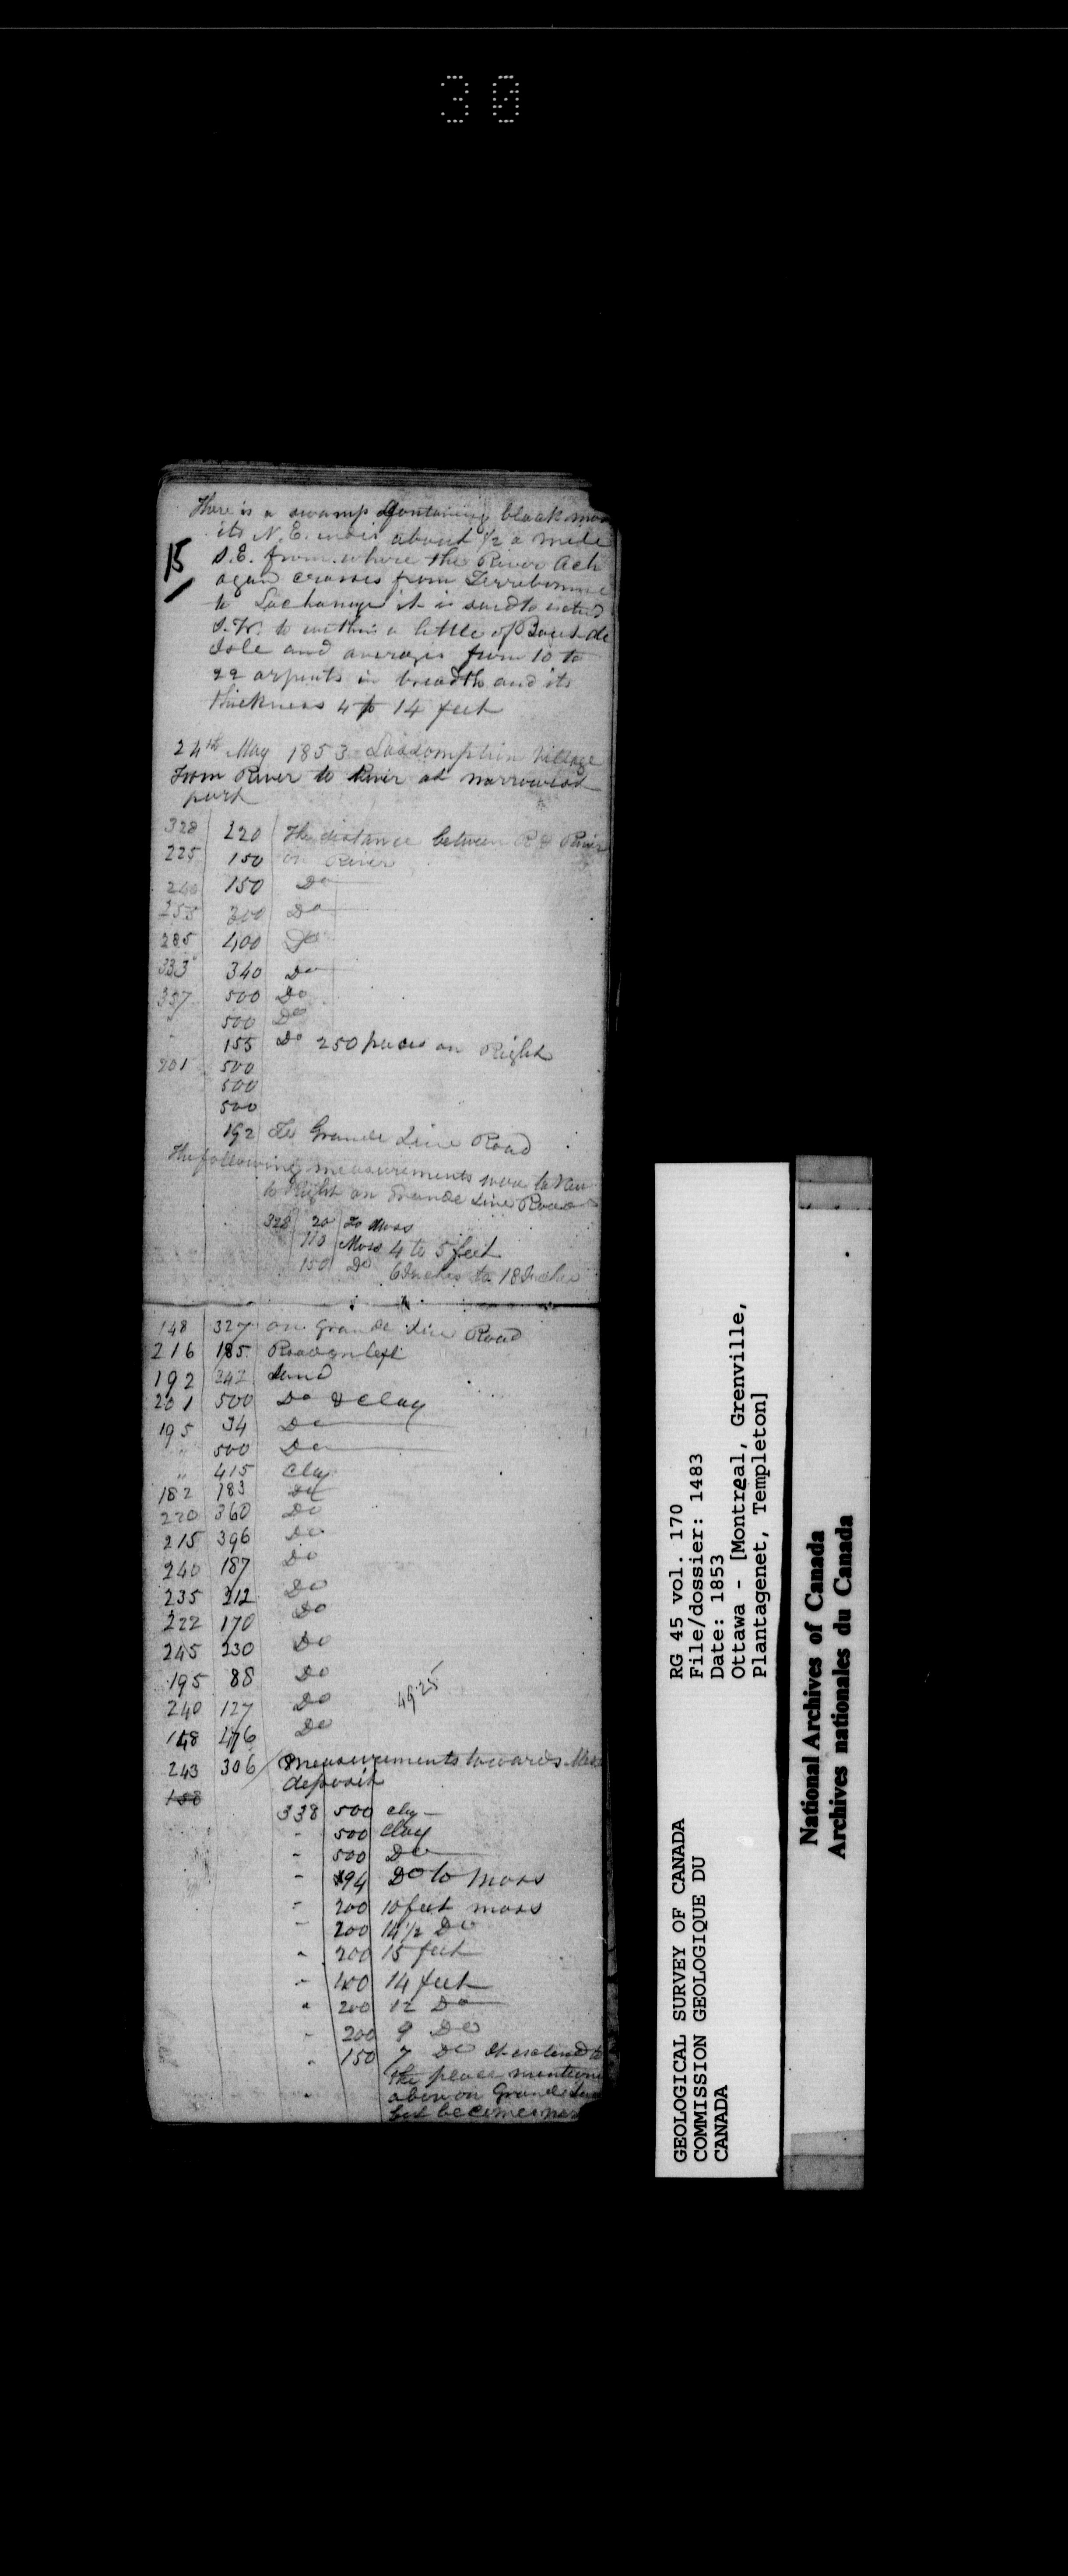 30
15
There is a swamp containing black moss
its N.E. end is about 1/2 a mile
S.E. from where the River Ach
again crosses from Terrebonne
to Lachenaye it is said to extend
S.W. to within a little of Bout de
Isle and averages from 10 to
22 arpents in breadth and its
thickness 4 to 14 feet
24th May 1853 Lassomption Village
From River to River at narrowest
part
328 220 The distance between R & River
225 150 on River
240 150 Do
255 300 Do
285 400 Do
333 340 Do
337 500 Do
" 500 Do
" 155 Do 250 paces on Right
201 500
500
500
192 To Grande Line Road
The following measurements were taken
to Right on Grande Line Road
328 20 To Moss
110 Moss 4 to 5 feet
150 Do 6 Inches to 18 Inches
148 327 on Grande Line Road
216 185 Road on left
192 242 Sand
201 500 Do & Clay
195 34 Do
" 500 Do
" 415 Clay
182 183 Do
220 360 Do
215 396 Do
240 187 Do
235 312 Do
222 170 Do
245 230 Do
195 88 Do
49.25
240 127 Do
148 476 Do
243 306 Measurements towards Moss
deposit
158
338 500 Clay
- 500 Clay
- 500 Do
- 494 Do to Moss
- 200 10 feet moss
- 200 14 1/2 Do
" 200 15 feet
- 400 14 feet
" 200 12 Do
- 200 9 Do
" 150 7 Do It extend to
the place mentione
above on Grande Line
but becomes nar
GEOLOGICAL SURVEY OF CANADA
COMMISSION GEOLOGIQUE DU
CANADA
RG 45 vol. 170
File/dossier: 1483
Date: 1853
Ottawa - [Montreal, Grenville,
Plantagenet, Templeton]
National Archives of Canada
Archives nationales du Canada